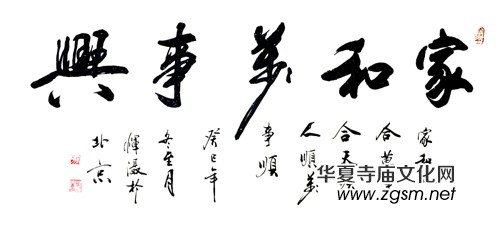 家和萬事興
家和
合
合天
人順萬
事順
癸巳年
冬至月
於
北京
华夏寺庙文化网
www.zgsm.net